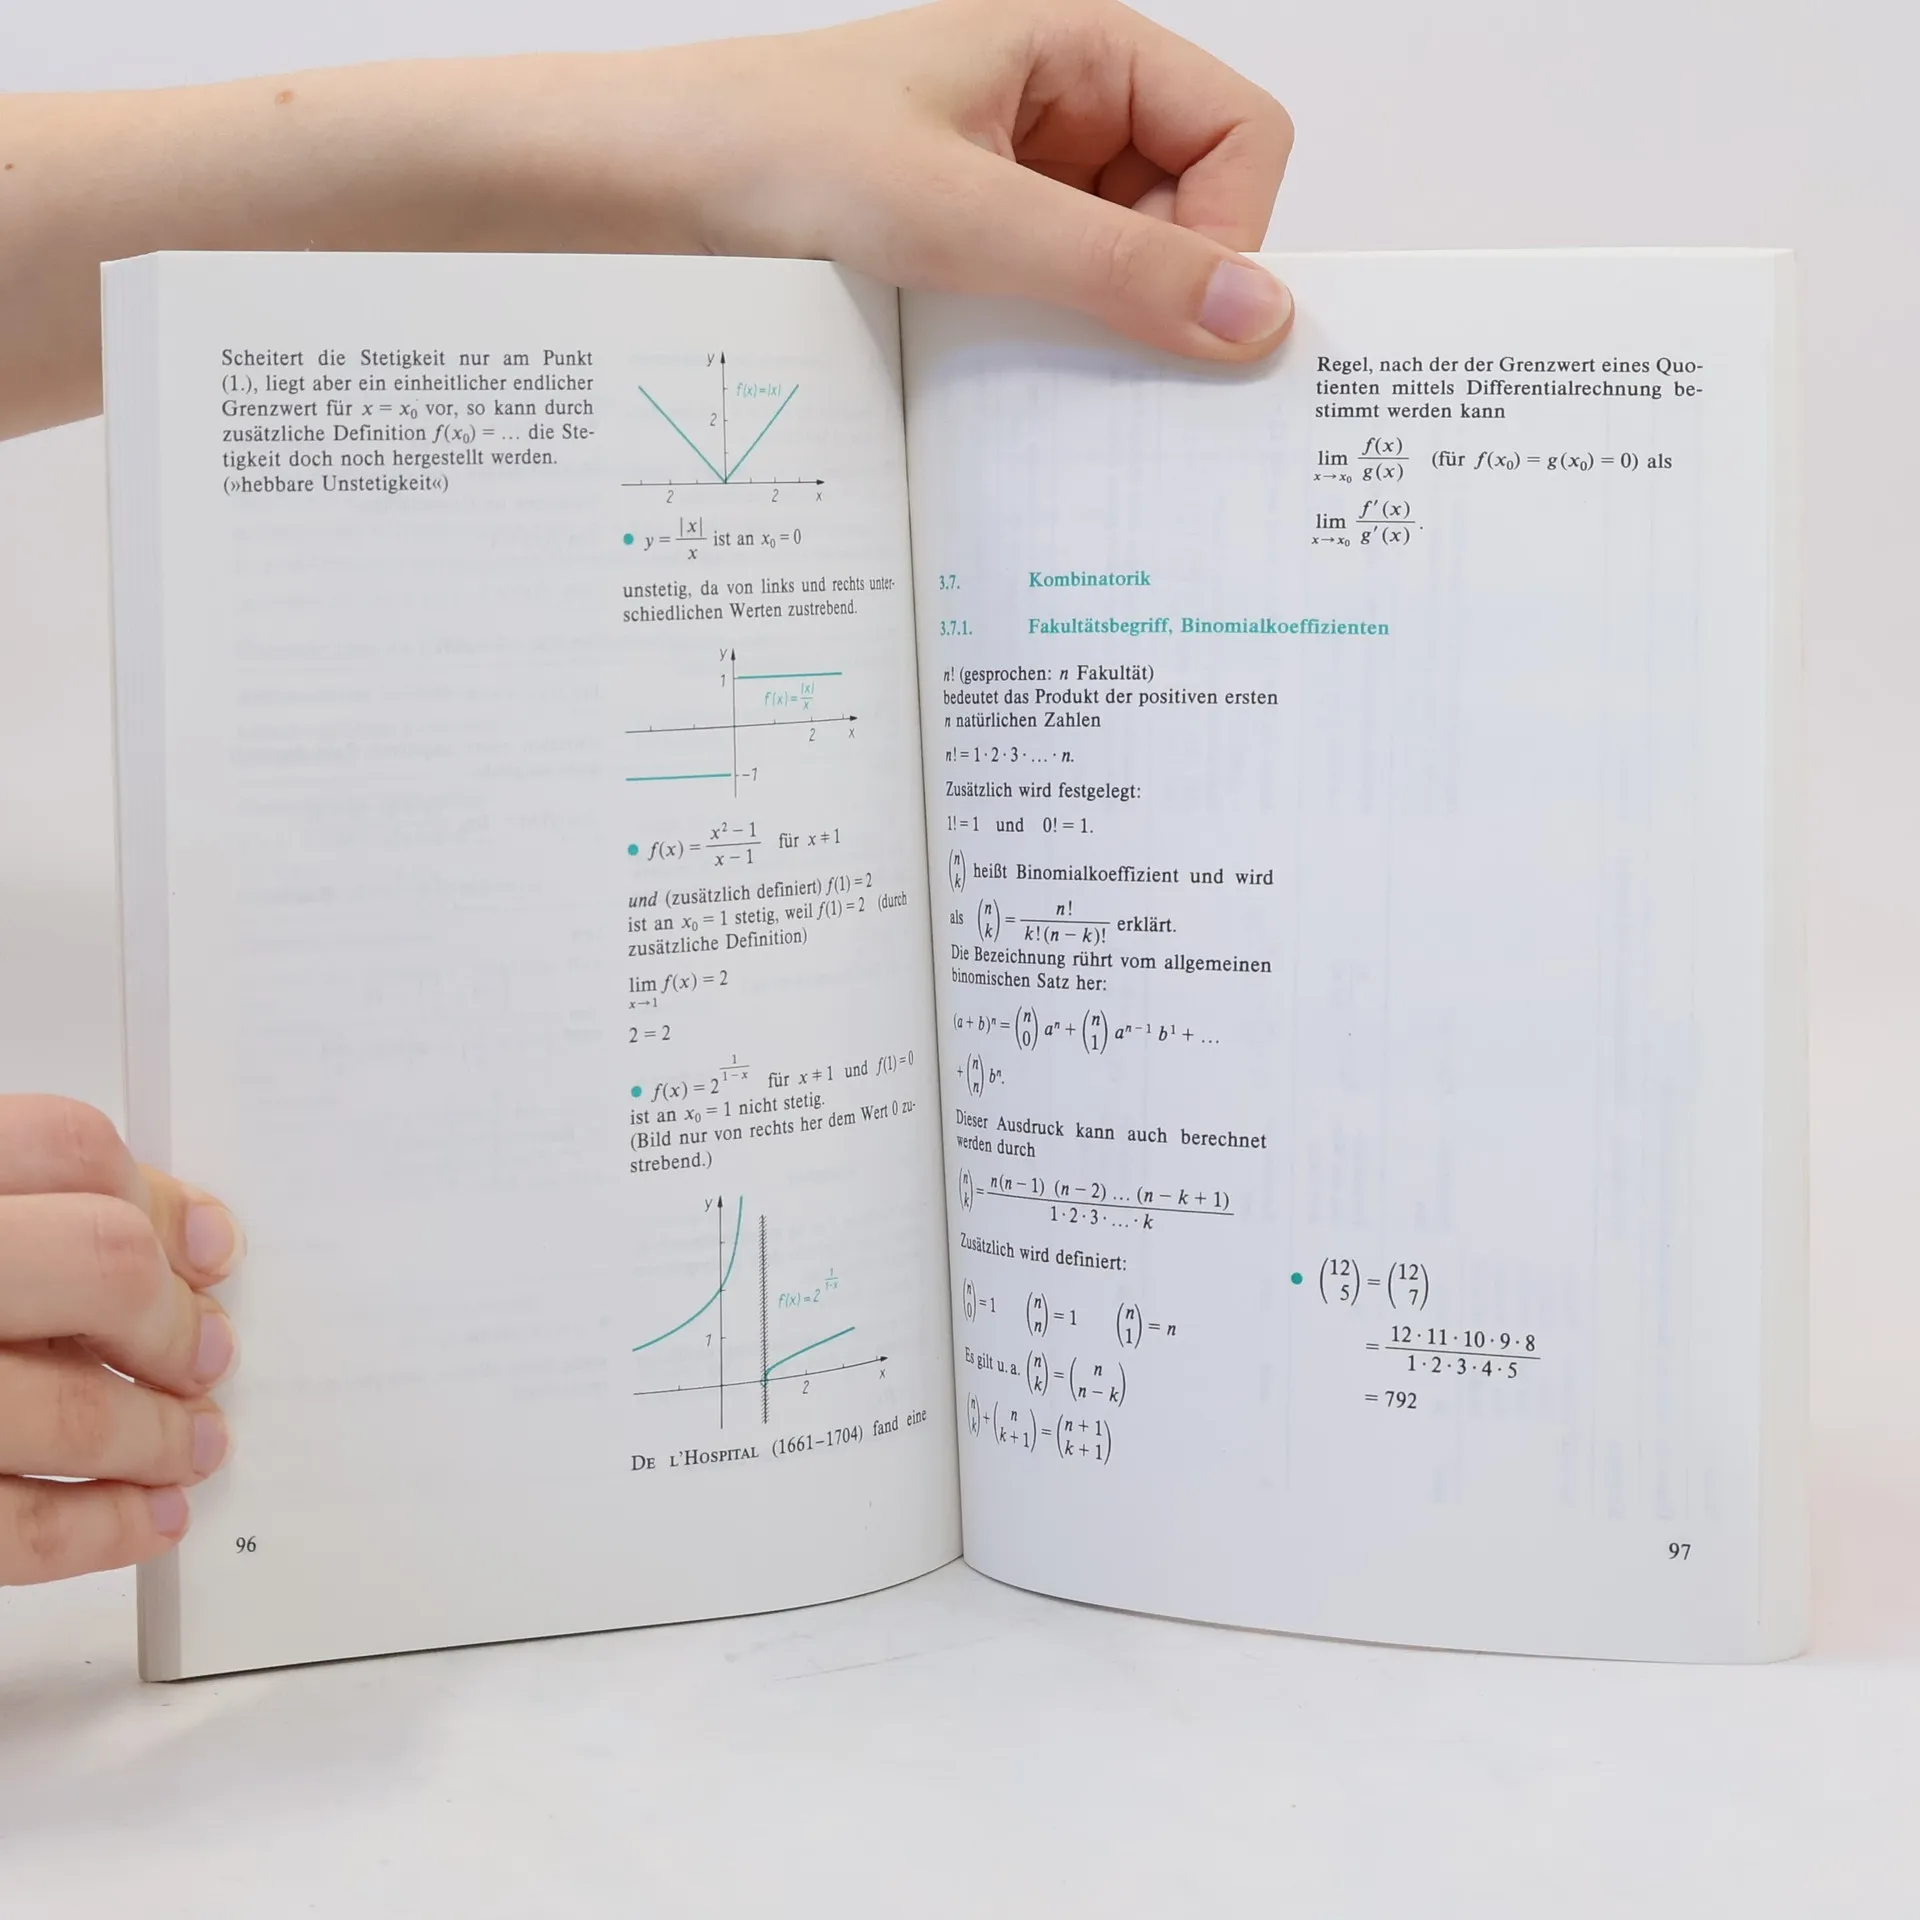 Scheitert die Stetigkeit nur am Punkt
(1.), liegt aber ein einheitlicher endlicher
Grenzwert für x = x₀ vor, so kann durch
zusätzliche Definition f(x₀) = ... die Ste-
tigkeit doch noch hergestellt werden.
(»hebbare Unstetigkeit«)
y
f(x)=|x|
2
2 2 x
● y = |x|/x ist an x₀ = 0
unstetig, da von links und rechts unter-
schiedlichen Werten zustrebend.
y
1
f(x)=|x|/x
2 x
-1
● f(x) = (x² − 1)/(x − 1) für x ≠ 1
und (zusätzlich definiert) f(1) = 2
ist an x₀ = 1 stetig, weil f(1) = 2 (durch
zusätzliche Definition)
lim f(x) = 2
x→1
2 = 2
● f(x) = 2^(1/(1−x)) für x ≠ 1 und f(1) = 0
ist an x₀ = 1 nicht stetig.
(Bild nur von rechts her dem Wert 0 zu-
strebend.)
y
f(x)=2^(1/(1-x))
1
2 x
DE L'HOSPITAL (1661–1704) fand eine
96
Regel, nach der der Grenzwert eines Quo-
tienten mittels Differentialrechnung be-
stimmt werden kann
lim f(x)/g(x) (für f(x₀) = g(x₀) = 0) als
x→x₀
lim f'(x)/g'(x).
x→x₀
3.7. Kombinatorik
3.7.1. Fakultätsbegriff, Binomialkoeffizienten
n! (gesprochen: n Fakultät)
bedeutet das Produkt der positiven ersten
n natürlichen Zahlen
n! = 1·2·3·...·n.
Zusätzlich wird festgelegt:
1! = 1 und 0! = 1.
(n k) heißt Binomialkoeffizient und wird
als (n k) = n!/(k!(n − k)!) erklärt.
Die Bezeichnung rührt vom allgemeinen
binomischen Satz her:
(a + b)ⁿ = (n 0) aⁿ + (n 1) aⁿ⁻¹ b¹ + ...
+ (n n) bⁿ.
Dieser Ausdruck kann auch berechnet
werden durch
(n k) = n(n − 1) (n − 2) ... (n − k + 1)/(1·2·3·...·k)
Zusätzlich wird definiert:
(n 0) = 1 (n n) = 1 (n 1) = n
Es gilt u. a. (n k) = (n n − k)
(n k) + (n k + 1) = (n + 1 k + 1)
● (12 5) = (12 7)
= (12 · 11 · 10 · 9 · 8)/(1 · 2 · 3 · 4 · 5)
= 792
97